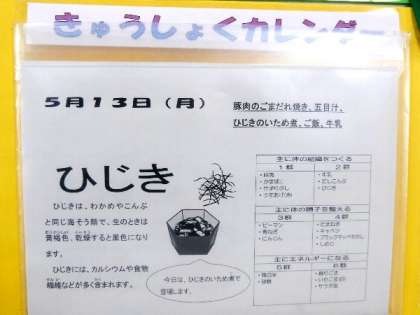 きゅうしょくカレンダー
5月13日(月)
豚肉のごまだれ焼き、五目汁、
ひじきのいため煮、ご飯、牛乳
ひじき
ひじきは、わかめやこんぶ
と同じ海そう類で、生のときは
黄褐色、乾燥すると黒色になり
ます。
ひじきには、カルシウムや食物
繊維などが多く含まれます。
今日は、ひじきのいため煮で
登場します。
主に体の組織をつくる
1群 2群
・豚肉 ・牛乳
・かまぼこ ・だしこんぶ
・ひじき
主に体の調子を整える
3群 4群
・ピーマン
・キャベツ
・にんじん ・しめじ
主にエネルギーになる
5群 6群
・砂糖
・サラダ油